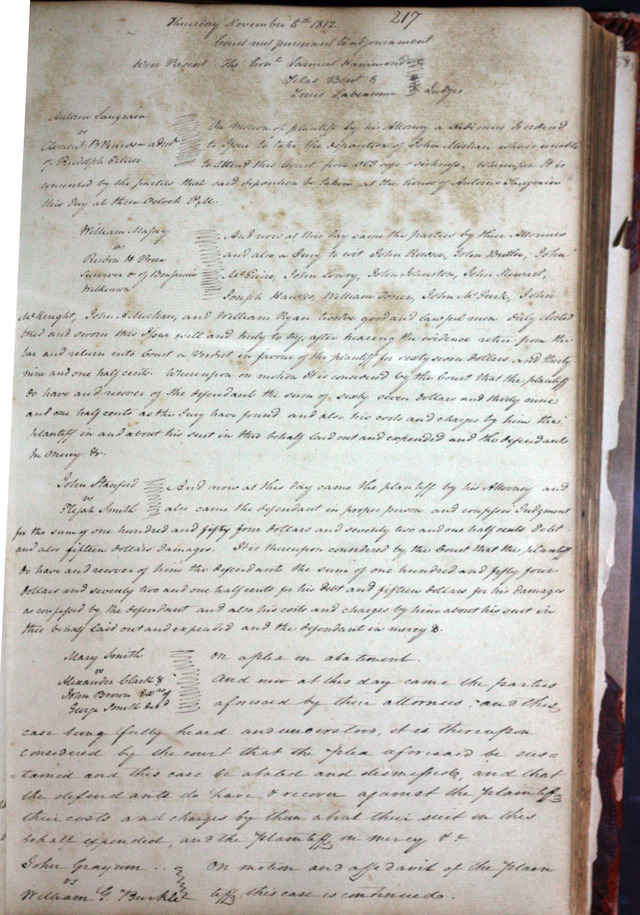 217
Thursday November 5th 1812
Court met pursuant to adjournment
Were Present The Honl. Samuel Hammond
Silas Bent &
Louis Labeaume Judges
Antoine Saugrain
vs
Clement B Penrose admr
of Rudolph Tillier
On Motion of plaintiff by his Attorney a Dedimus
to Issue to take the deposition of John Michau who is unable
to attend this Court from old age & sickness. Whereupon It is
consented by the parties that said deposition be taken at the house of Antoine Saugrain
this day at three Oclock P.M.
William Massey
vs
H Price
Survivor &c of Benjamin
Wilkinson
And now at this day came the parties by their Attornies
and also a Jury to wit John Bowen, John Butler, John
McGuire, John Lowry, John Johnston, John Stewart,
Joseph Hawkes, William Toner, John McGurk, John
McKnight, John A Michau, and William Ryan twelve good and lawful men duly elected
tried and sworn this Issue well and truly to try, after hearing the evidence retire from the
bar and return into Court a Verdict in favour of the plaintiff for sixty seven dollars and thirty
nine and one half cents. Whereupon on motion It is considered by the Court that the plaintiff
do have and recover of the defendants the sum of sixty seven dollars and thirty nine
and one half cents as the Jury have found and also his costs and charges by him the
plaintiff in and about his suit in this behalf laid out and expended and the defendants
In mercy &c.
John Stanford
vs
Elijah Smith
And now at this day came the plaintiff by his Attorney and
also came the defendant in proper person and confesses Judgment
for the sum of one hundred and fifty four dollars and seventy two and one half cents debt
and also fifteen dollars damages. It is thereupon considered by the Court that the plaintiff
do have and recover of him the defendant the sum of one hundred and fifty four
dollars and seventy two and one half cents for his debt and fifteen dollars for his damages
as confessed by the defendant and also his costs and charges by him about his suit in
this behalf laid out and expended and the defendant in mercy &.
Mary Smith
vs
Alexander Clark &
John Brown Exrs of
George Smith decd
On a plea in abatement.
And now at this day came the parties
aforesaid by their attornies, and this
case being fully heard and understood, it is thereupon
considered by the court that the plea aforesaid be sus-
=tained and this case be abated and dismissed, and that
the defendants do have & recover against the plaintiff
their costs and charges by them about their suit in this
behalf expended, and the plaintiff in mercy &c
John Grayum
vs
William G. Burklet
On motion and affidavit of the plain
tiff, this case is continued.